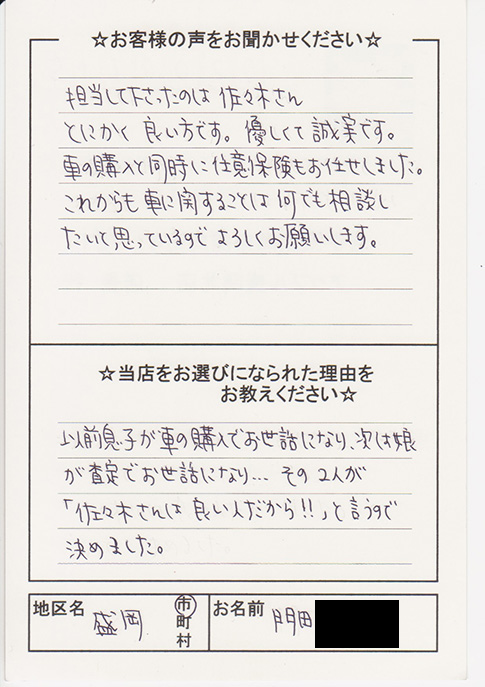 ☆お客様の声をお聞かせください☆
担当して下さったのは 佐々木さん
とにかく 良い方です。優しくて 誠実です。
車の購入と同時に任意保険もお任せしました。
これからも 車に関することは 何でも 相談し
たいと思っているので よろしくお願いします。
☆当店をお選びになられた理由を
お教えください☆
以前息子が車の購入でお世話になり、次は娘
が査定でお世話になり… その2人が
「佐々木さんは 良い人だから!!」と言うので
決めました。
地区名 盛岡 市町村 お名前 門田